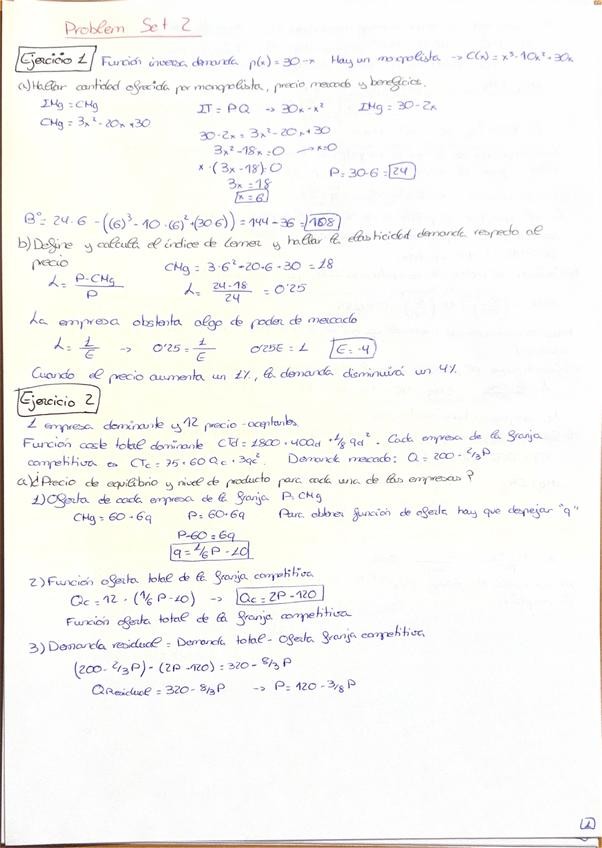 Problem Set 2
Ejercicio 1 Función inversa demanda p(x) = 30 - x Hay un monopolista → C(x) = x³ - 10x² + 30x
a) Hallar cantidad ofrecida por monopolista, precio mercado y beneficios.
IMg = CMg IT = P·Q → 30x - x² IMg = 30 - 2x
CMg = 3x² - 20x + 30
30 - 2x = 3x² - 20x + 30
3x² - 18x = 0 → x = 0
x · (3x - 18) = 0 P = 30 - 6 = 24
3x = 18
x = 6
Bº = 24·6 - ((6)³ - 10·(6)² + (30·6)) = 144 - 36 = 108
b) Define y calcula el índice de Lerner y hallar la elasticidad demanda respecto al
precio CMg = 3·6² + 20·6 + 30 = 18
L = P - CMg / P L = 24 - 18 / 24 = 0'25
La empresa obstenta algo de poder de mercado
L = 1/E → 0'25 = 1/E 0'25E = 1 E = -4
Cuando el precio aumenta un 1%, la demanda disminuirá un 4%
Ejercicio 2
1 empresa dominante y 12 precio-aceptantes
Función coste total dominante CTd = 1800 + 40Qd + 1/8 qd². Cada empresa de la franja
competitiva es CTc = 75 + 60Qc + 3qc². Demanda mercado: Q = 200 - 2/3P
a) ¿Precio de equilibrio y nivel de producto para cada una de las empresas?
1) Oferta de cada empresa de la franja P = CMg
CMg = 60 + 6q P = 60 + 6q Para obtener función de oferta hay que despejar "q"
P - 60 = 6q
q = 1/6P - 10
2) Función oferta total de la franja competitiva
Qc = 12 · (1/6P - 10) → Qc = 2P - 120
Función oferta total de la franja competitiva
3) Demanda residual = Demanda total - Oferta franja competitiva
(200 - 2/3P) - (2P - 120) = 320 - 8/3P
QResidual = 320 - 8/3P → P = 120 - 3/8P
1